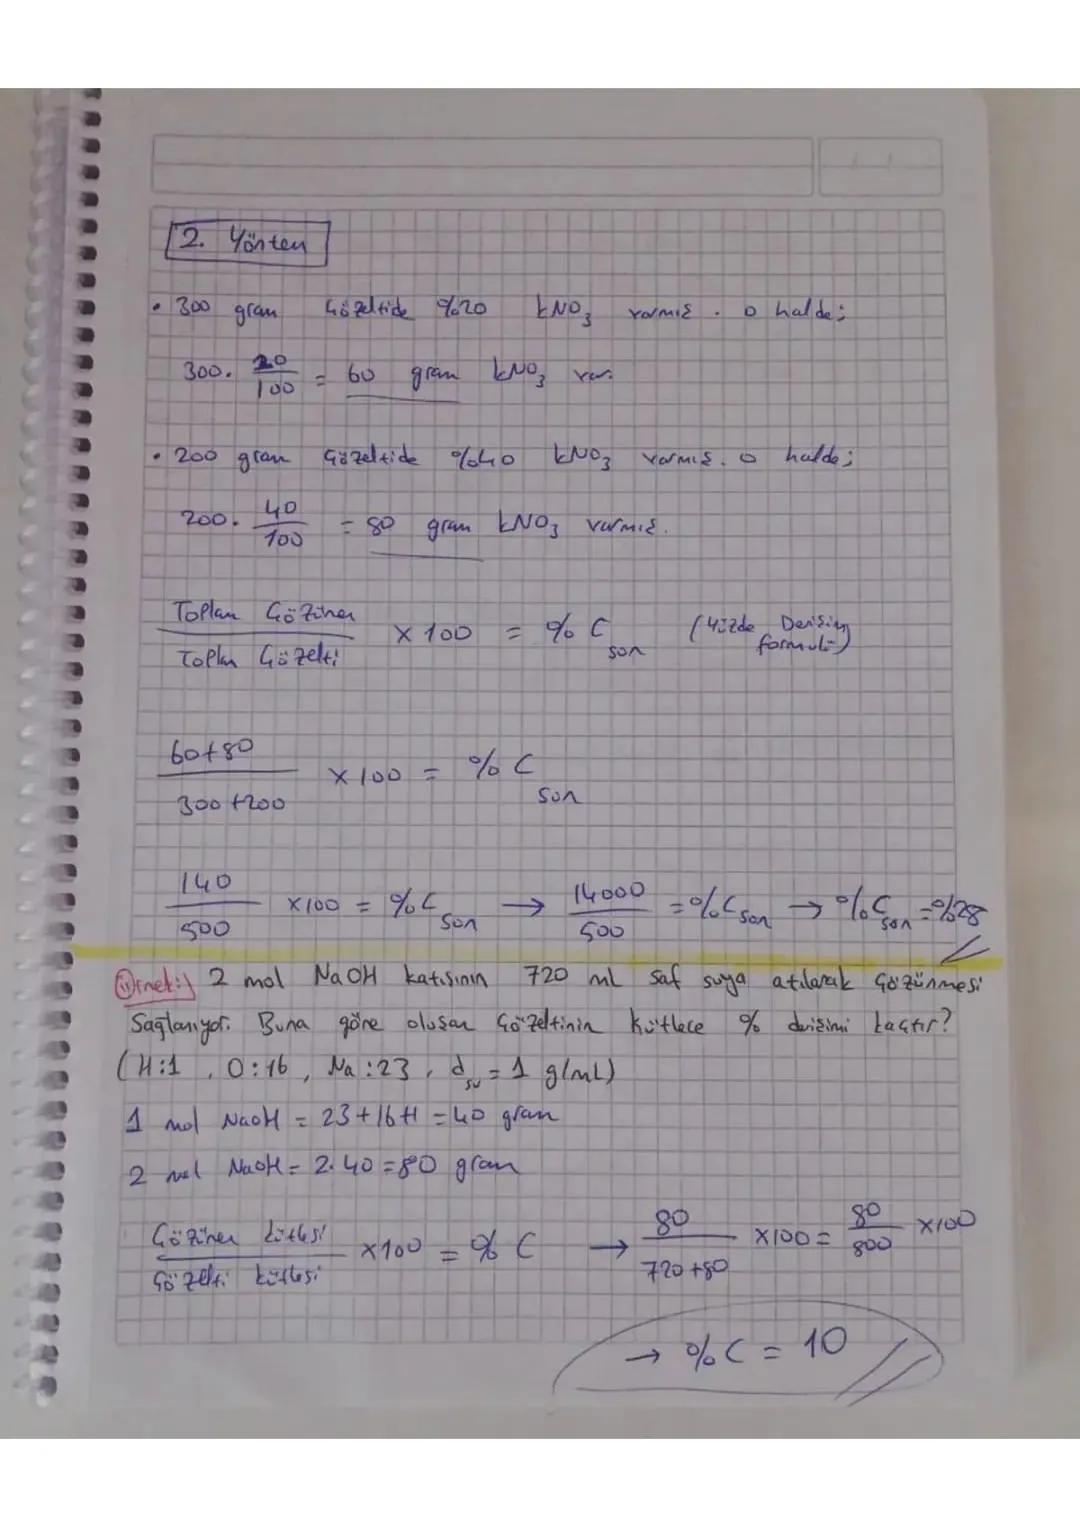 2. Yöntem
• 300 gram Çözeltide %20 KNO₃ varmış. O halde;
300. 20/100 = 60 gram KNO₃ var.
• 200 gram Çözeltide %40 KNO₃ varmış. O halde;
200. 40/100 = 80 gram KNO₃ varmış.
Toplam Çözünen / Toplam Çözelti x 100 = % C son (Yüzde Derişim formülü)
60+80 / 300+200 x 100 = % C son
140/500 x100 = %C son → 14000/500 = %C son → %C son = %28
Örnek:) 2 mol NaOH katısının 720 ml saf suya atılarak Çözünmesi
Sağlanıyor. Buna göre oluşan Çözeltinin kütlece % derişimi kaçtır?
(H:1, O:16, Na:23, d su = 1 g/mL)
1 mol NaOH = 23+16+1 = 40 gram
2 mol NaOH = 2.40 = 80 gram
Çözünen kütlesi / Çözelti kütlesi x100 = % C → 80 / 720+80 x100 = 80/800 x100
→ % C = 10